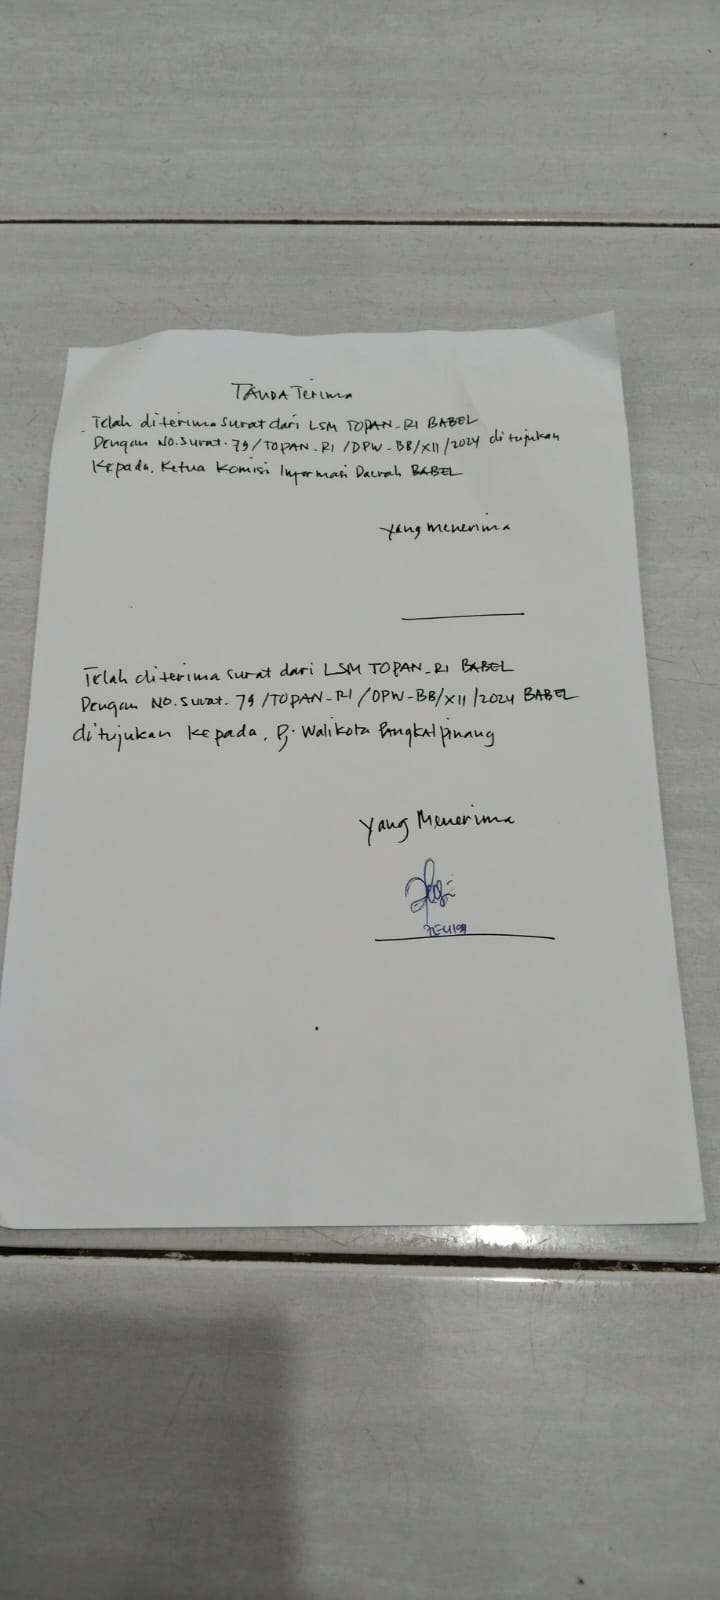 TANDA Terima
Telah diterima surat dari LSM TOPAN-RI BABEL
Dengan NO. Surat. 79/TOPAN-RI/DPW-BB/XII/2024 ditujukan
Kepada, Ketua Komisi Informasi Daerah BABEL
yang menerima
Telah diterima surat dari LSM TOPAN-RI BABEL
Dengan NO. Surat. 79/TOPAN-RI/DPW-BB/XII/2024 BABEL
ditujukan Kepada, Pj. Walikota Pangkalpinang
Yang Menerima